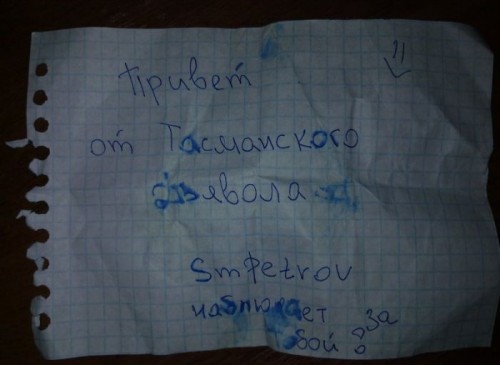 Привет
от Тасманского
Дьявола
SmPetrov
наблюдает
за